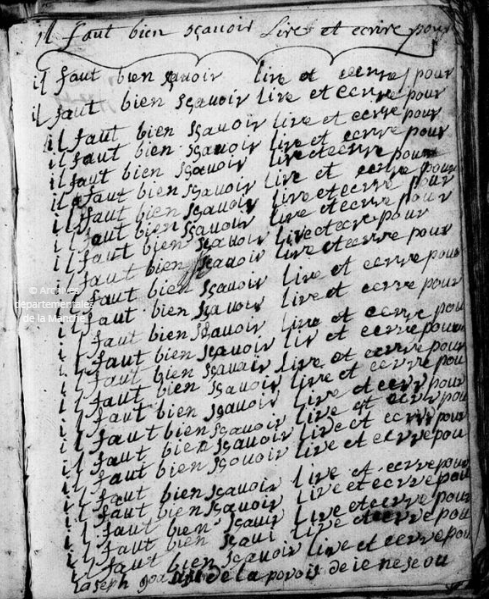 il faut bien sçavoir Lire et ecrire pour
il faut bien sçavoir lire et ecrire pour
il faut bien sçavoir lire et ecrire pour
il faut bien sçavoir lire et ecrire pour
il faut bien sçavoir lire et ecrire pour
il faut bien sçavoir lire et ecrire pour
il faut bien sçavoir lire et ecrire pour
il faut bien sçavoir lire et ecrire pour
il faut bien sçavoir lire et ecrire pour
il faut bien sçavoir lire et ecrire pour
il faut bien sçavoir lire et ecrire pour
© Archives
départementales
de la Manche
il faut bien sçavoir lire et ecrire pour
il faut bien sçavoir lire et ecrire pour
il faut bien sçavoir lire et ecrire pour
il faut bien sçavoir lire et ecrire pour
il faut bien sçavoir lire et ecrire pou
il faut bien sçavoir lire et ecrire pou
il faut bien sçavoir lire et ecrire pou
il faut bien sçavoir lire et ecrire pou
il faut bien sçavoir lire et ecrire pour
il faut bien sçavoir lire et ecrire pou
il faut bien sçavi lire et ecrire pou
il faut bien sçavoir lire et ecrire pou
de la